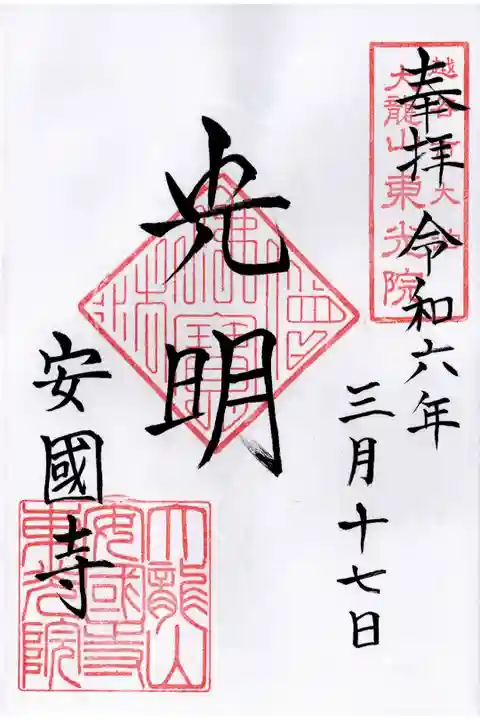 奉拝 令和六年
三月十七日
大龍山東光院
光明
佛法僧寶
安國寺
大龍山
安國寺
東光院